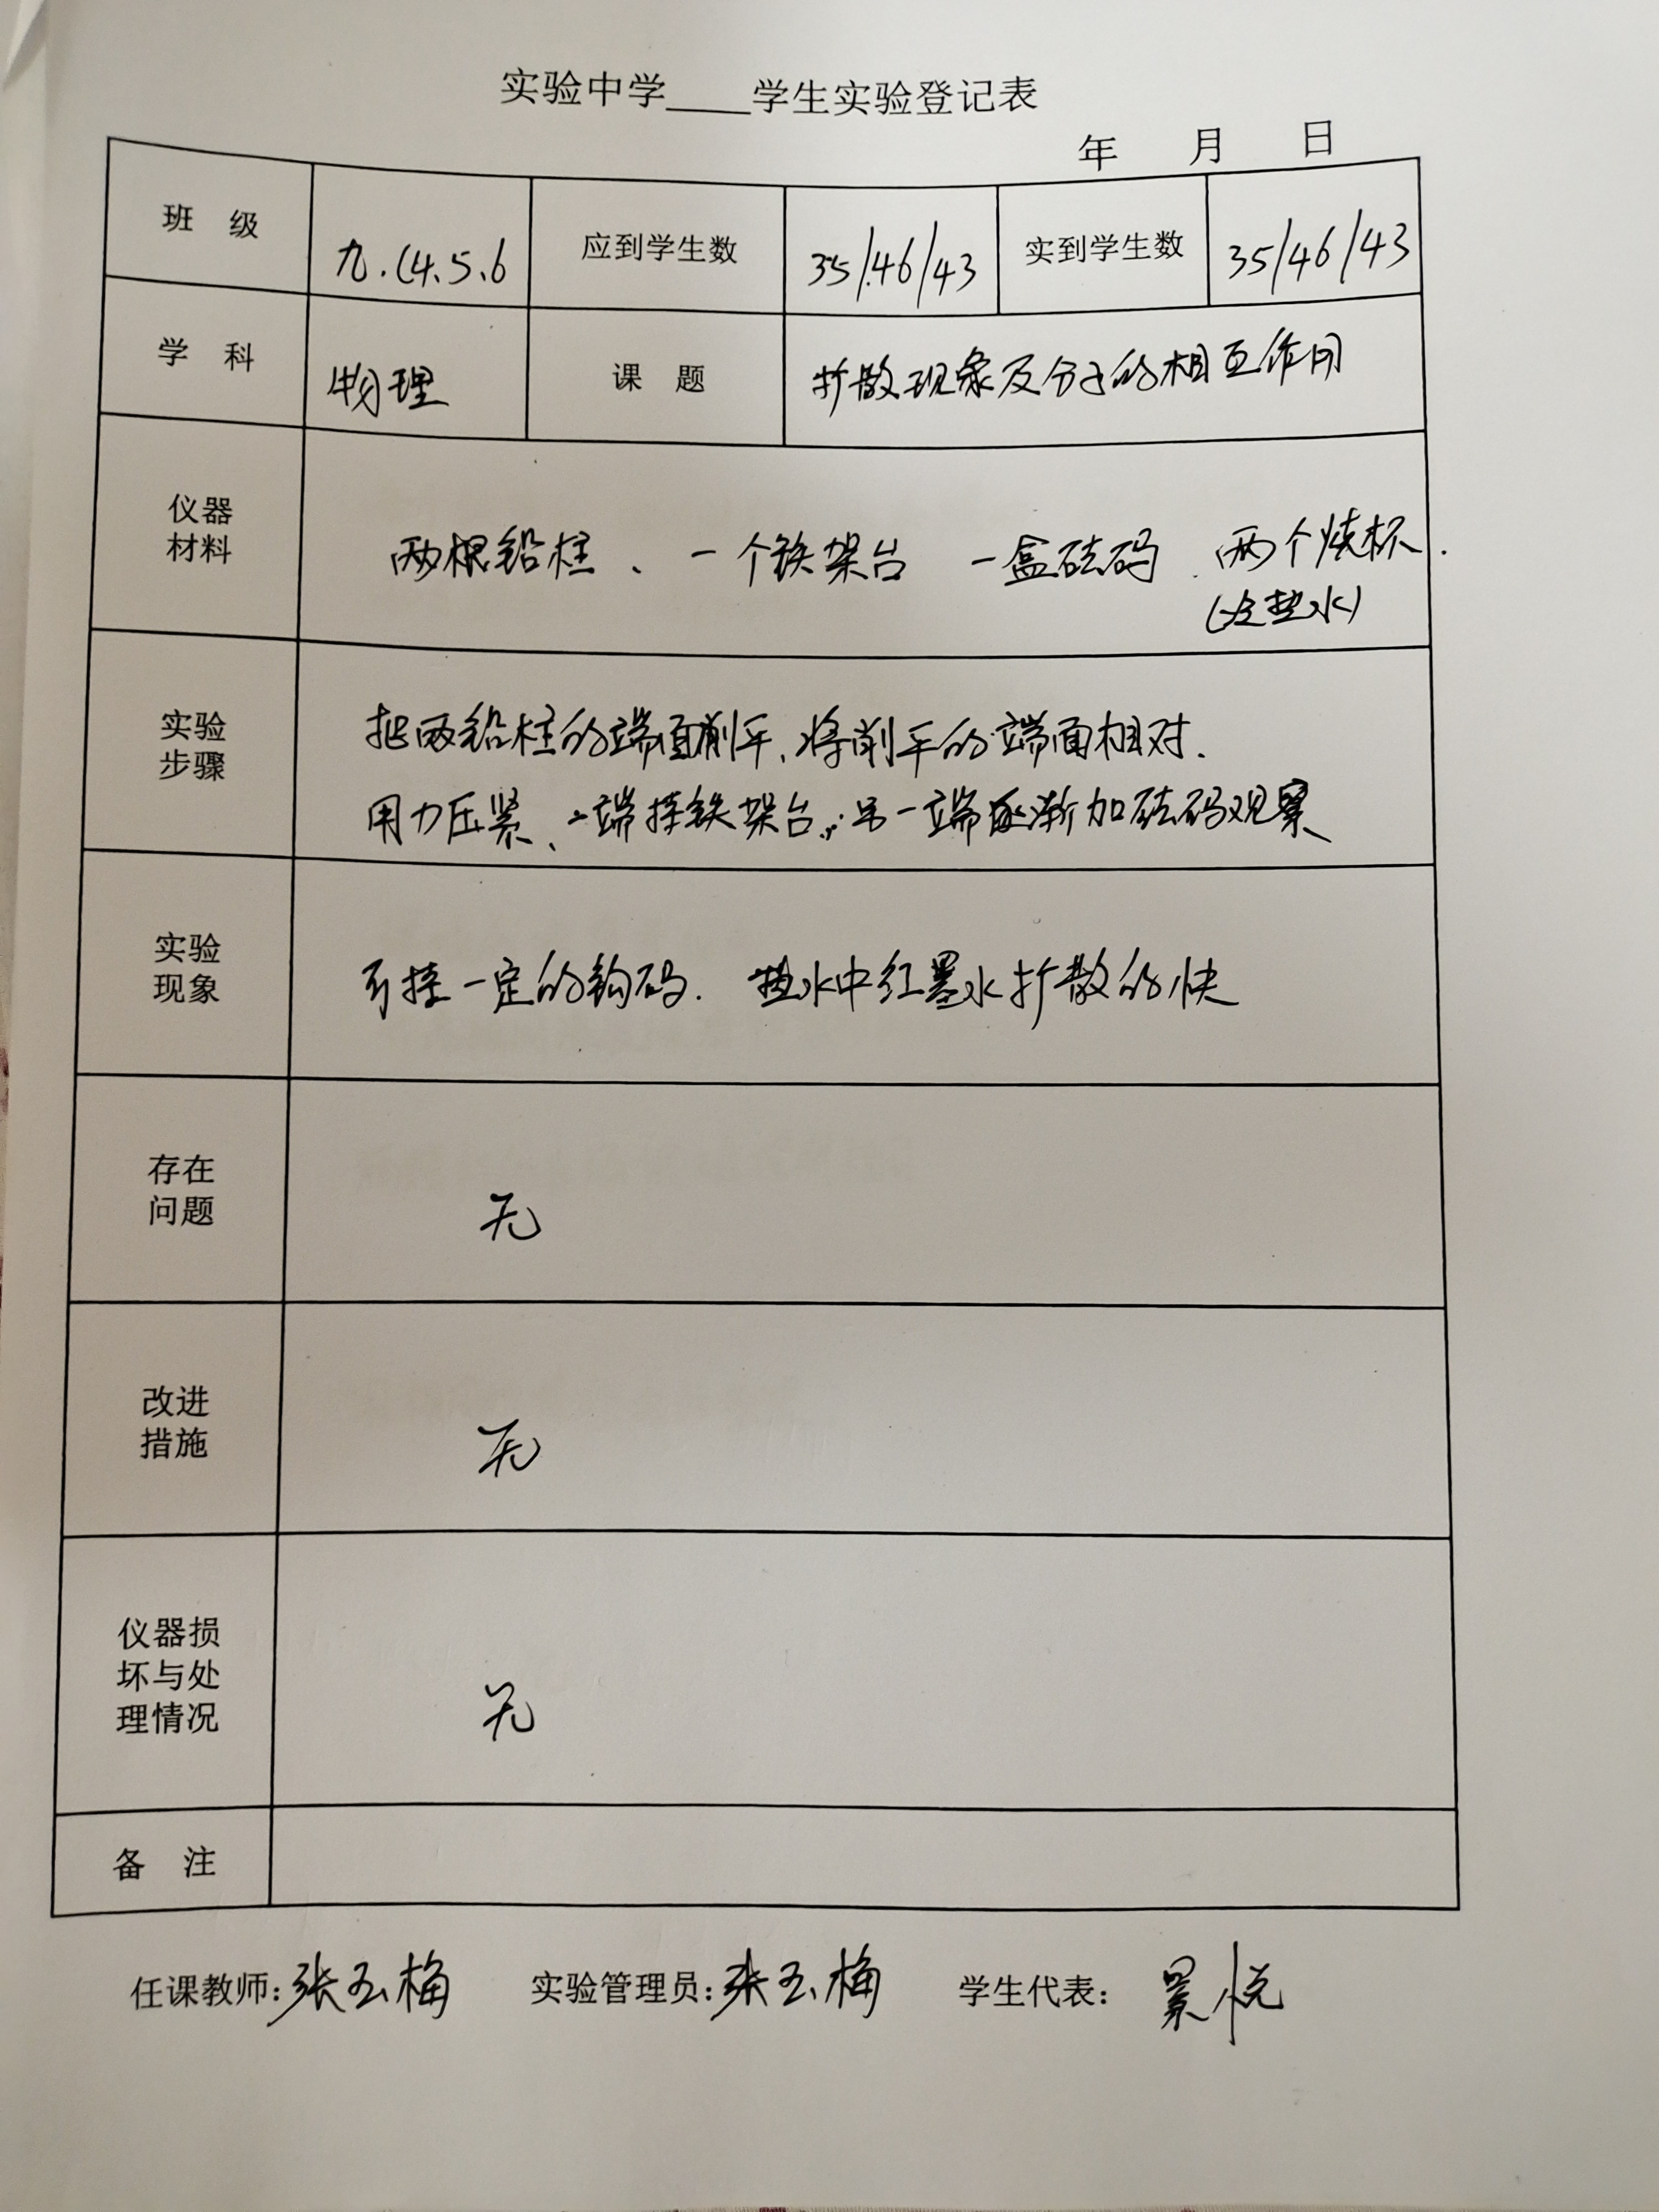 实验中学____学生实验登记表
年 月 日
班 级 九.(4.5.6 应到学生数 35/46/43 实到学生数 35/46/43
学 科 物理 课 题 扩散现象及分子的相互作用
仪器
材料
两根铅柱、一个铁架台 一盒砝码 两个烧杯.
(冷热水)
实验
步骤
把两铅柱的端面削平,将削平的端面相对.
用力压紧、一端挂铁架台,另一端逐渐加砝码观察
实验
现象
可挂一定的钩码. 热水中红墨水扩散的快
存在
问题
无
改进
措施
无
仪器损
坏与处
理情况
无
备 注
任课教师:张玉梅 实验管理员:张玉梅 学生代表: 悦